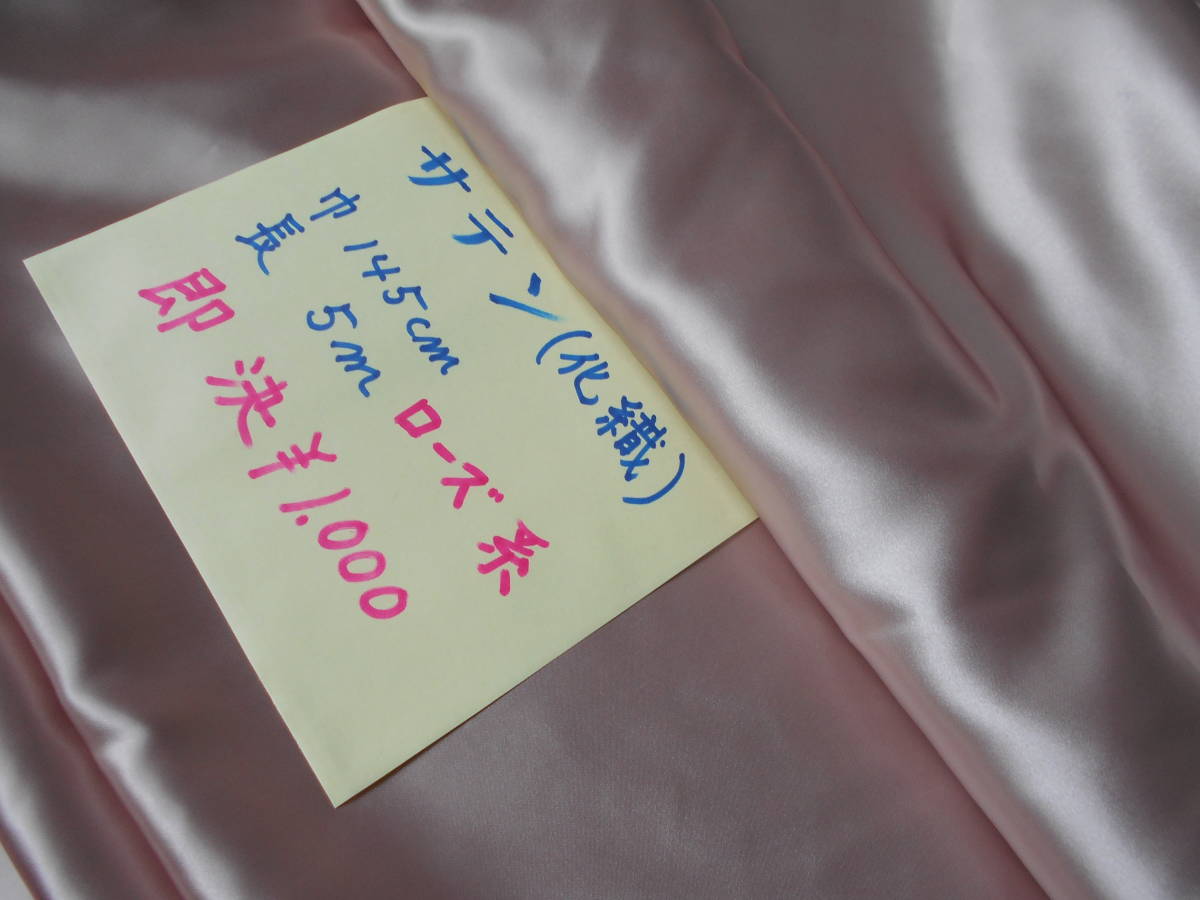 サテン(化繊)
巾 145cm
長 5m ローズ系
即決¥1.000